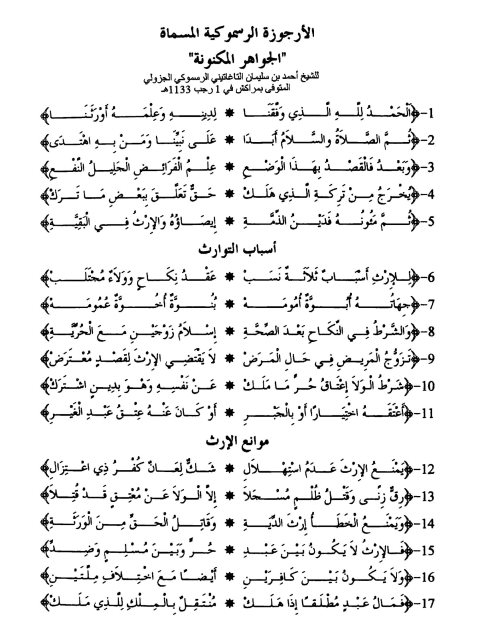 الأرجوزة الرسموكية المسماة
"الجواهر المكنونة"
للشيخ أحمد بن سليمان التاغاتيني الرسموكي الجزولي
المتوفى بمراكش في 1 رجب 1133هـ
1-﴿اَلْحَمْدُ لِلَّهِ الَّذِي وَفَّقَنَا ✷ لِدِينِهِ وَعِلْمَهُ أَوْرَثَنَا﴾
2-﴿ثُمَّ الصَّلاَةُ وَالسَّلاَمُ أَبَدَا ✷ عَلَى نَبِيِّنَا وَمَنْ بِهِ اهْتَدَى﴾
3-﴿وَبَعْدُ فَالْقَصْدُ بِهَذَا الْوَضْعِ ✷ عِلْمُ الْفَرَائِضِ الْجَلِيلُ النَّفْعِ﴾
4-﴿يُخْرَجُ مِنْ تَرِكَةِ الَّذِي هَلَكْ ✷ حَقٌّ تَعَلَّقَ بِبَعْضِ مَا تَرَكْ﴾
5-﴿ثُمَّ مَئُونُهُ فَدَيْنُ الذِّمَّةِ ✷ إِيصَاؤُهُ وَالإِرْثُ فِي الْبَقِيَّةِ﴾
أسباب التوارث
6-﴿لِلإِرْثِ أَسْبَابٌ ثَلاَثَةٌ نَسَبْ ✷ عَقْدُ نِكَاحٍ وَوَلاَءٌ مُجْتَلَبْ﴾
7-﴿جِهَاتُهُ أُبُوَّةٌ أُمُومَهْ ✷ بُنُوَّةٌ أُخُوَّةٌ عُمُومَهْ﴾
8-﴿وَالشَّرْطُ فِي النِّكَاحِ بَعْدَ الصِّحَّةِ ✷ إِسْلاَمُ زَوْجَيْنِ مَعَ الْحُرِّيَّةِ﴾
9-﴿تَزَوُّجُ الْمَرِيضِ فِي حَالِ الْمَرَضْ ✷ لاَ يَقْتَضِي الإِرْثَ لِقَصْدٍ مُعْتَرَضْ﴾
10-﴿شَرْطُ الْوَلاَ إِعْتَاقُ حُرٍّ مَا مَلَكْ ✷ عَنْ نَفْسِهِ وَهْوَ بِدِينٍ اشْتَرَكْ﴾
11-﴿أَعْتَقَهُ اخْتِيَارًا أَوْ بِالْجَبْرِ ✷ أَوْ كَانَ عَنْهُ عِتْقُ عَبْدِ الْغَيْرِ﴾
موانع الإرث
12-﴿يَمْنَعُ الإِرْثَ عَدَمُ اسْتِهْلاَلِ ✷ شَكٌّ لِعَانٌ كُفْرُ ذِي اعْتِزَالِ﴾
13-﴿رِقٌّ زِنًى وَقَتْلُ ظُلْمٍ مُسْجَلاَ ✷ إِلاَّ الْوَلاَ عَنْ مُعْتِقٍ قَدْ قُتِلاَ﴾
14-﴿وَيَمْنَعُ الْخَطَأُ إِرْثَ الدِّيَةِ ✷ وَقَاتِلُ الْحَقِّ مِنَ الْوَرَثَةِ﴾
15-﴿فَالإِرْثُ لاَ يَكُونُ بَيْنَ عَبْدِ ✷ حُرٍّ وَبَيْنَ مُسْلِمٍ وَضِدِّ﴾
16-﴿وَلاَ يَكُونُ بَيْنَ كَافِرَيْنِ ✷ أَيْضًا مَعَ اخْتِلاَفِ مِلَّتَيْنِ﴾
17-﴿فَمَالُ عَبْدٍ مُطْلَقًا إِذَا هَلَكْ ✷ مُنْتَقِلٌ بِالْمِلْكِ لِلَّذِي مَلَكْ﴾